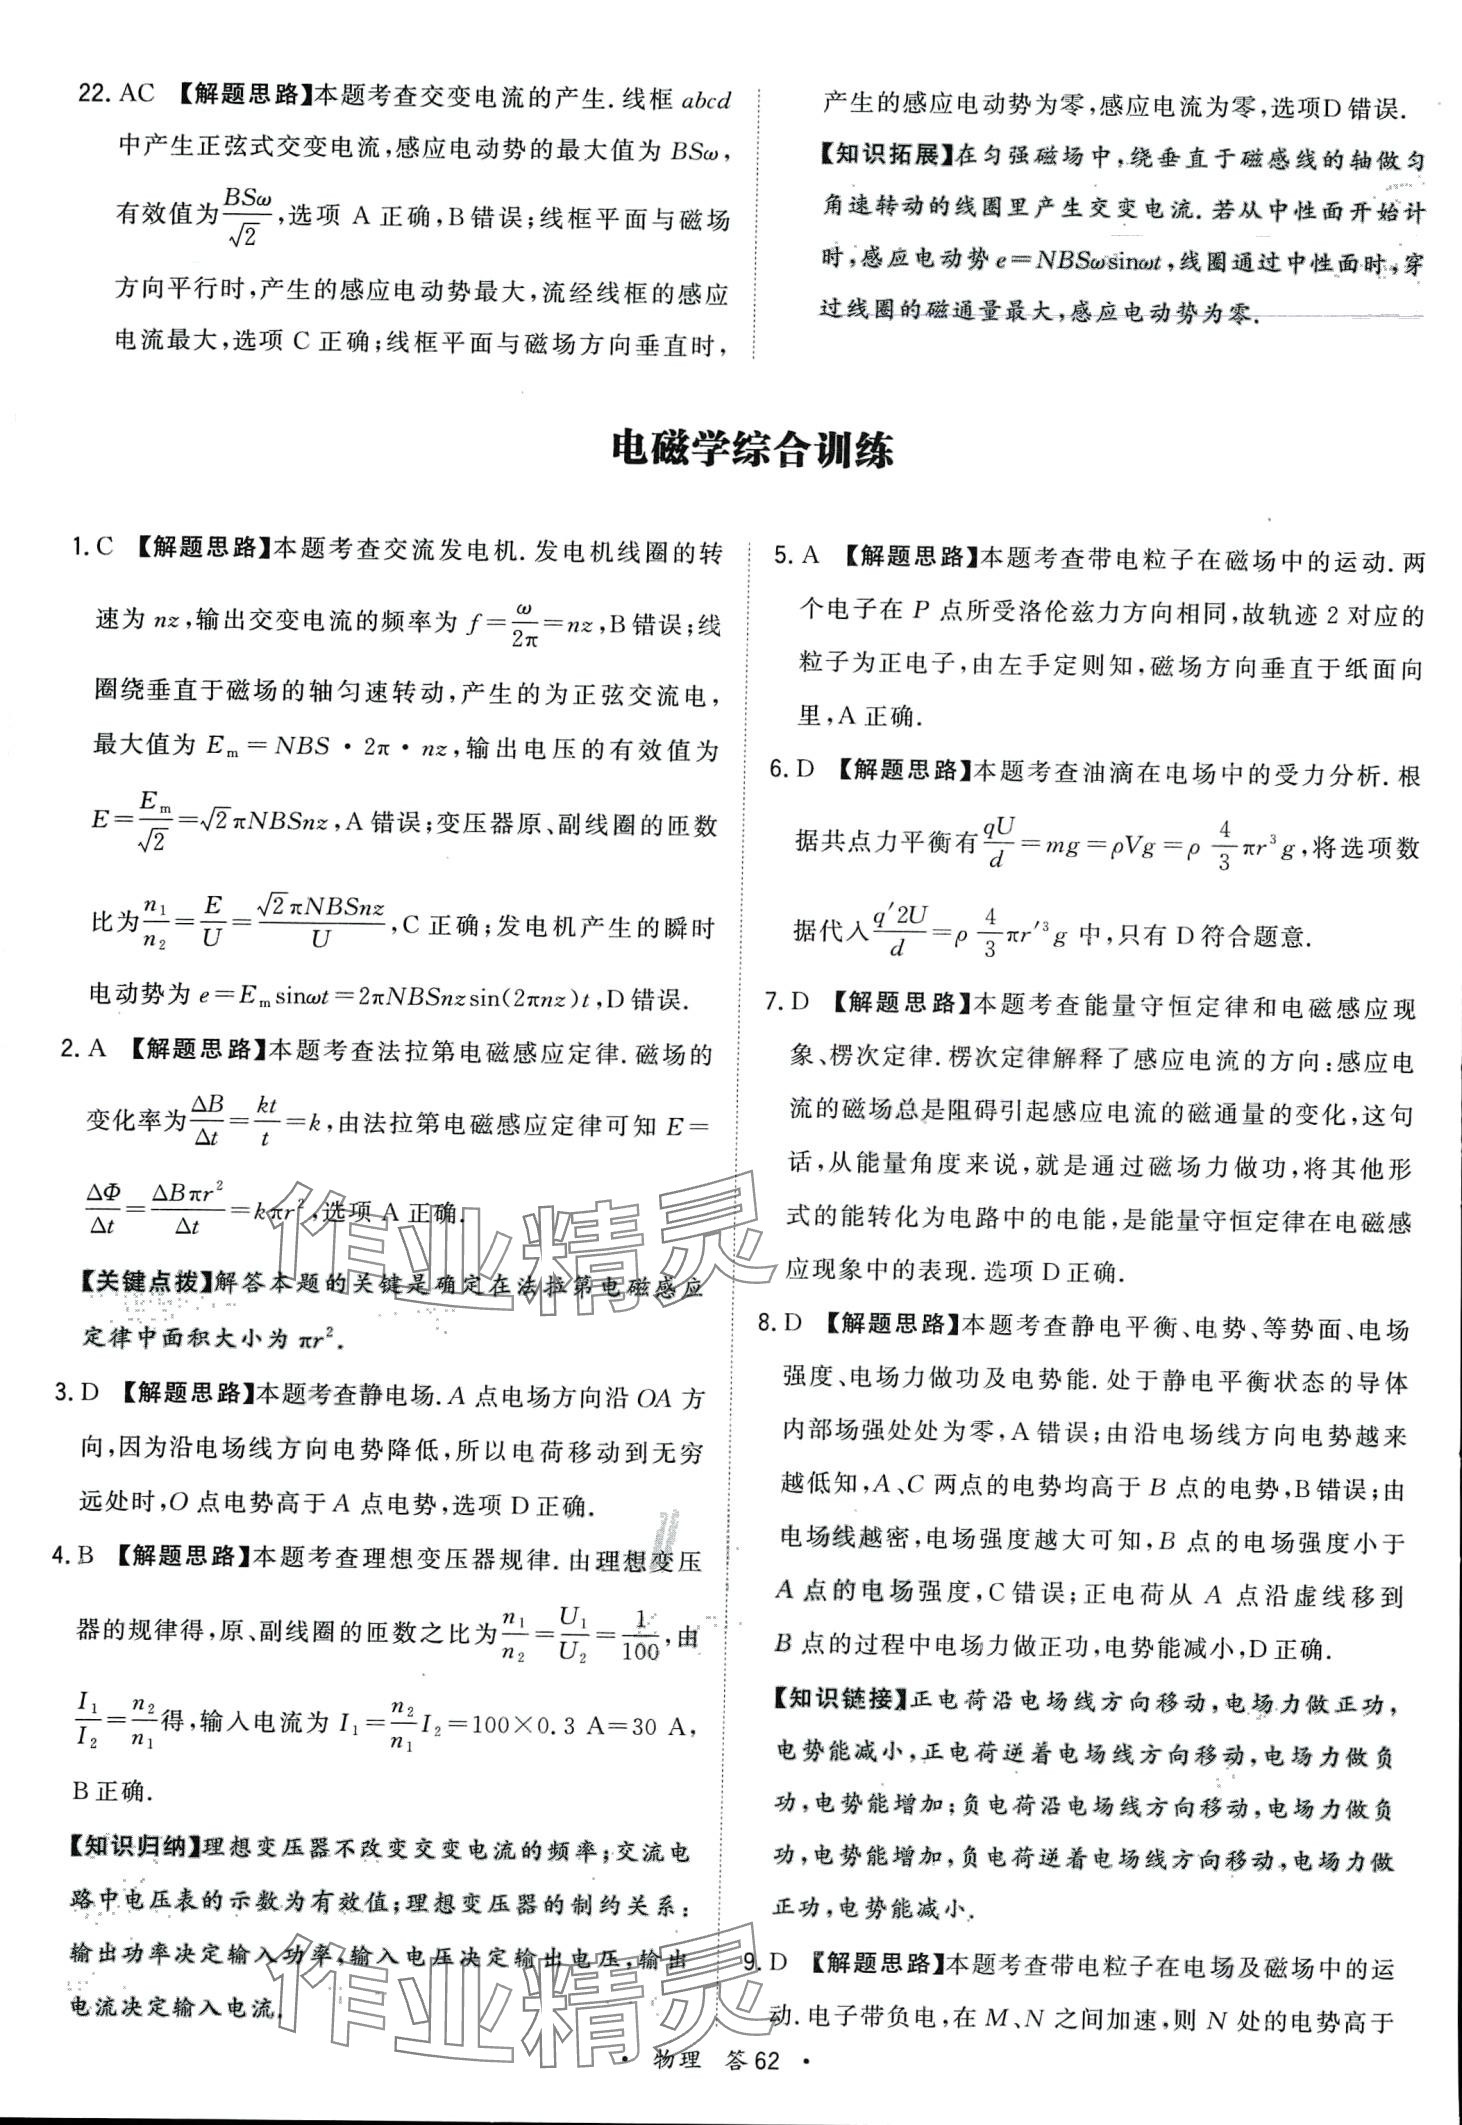 22. AC 【解题思路】本题考查交变电流的产生. 线框 abcd
中产生正弦式交变电流,感应电动势的最大值为 BSω,
有效值为 BSω/√2,选项 A 正确,B 错误;线框平面与磁场
方向平行时,产生的感应电动势最大,流经线框的感应
电流最大,选项 C 正确;线框平面与磁场方向垂直时,
产生的感应电动势为零,感应电流为零,选项D 错误.
【知识拓展】在匀强磁场中,绕垂直于磁感线的轴做匀
角速转动的线圈里产生交变电流. 若从中性面开始计
时,感应电动势 e=NBSωsinωt,线圈通过中性面时,穿
过线圈的磁通量最大,感应电动势为零.
电磁学综合训练
1. C 【解题思路】本题考查交流发电机. 发电机线圈的转
速为 nz,输出交变电流的频率为 f=ω/2π=nz,B 错误;线
圈绕垂直于磁场的轴匀速转动,产生的为正弦交流电,
最大值为 Eₘ=NBS・2π・nz,输出电压的有效值为
E=Eₘ/√2=√2πNBSnz,A 错误;变压器原、副线圈的匝数
比为 n₁/n₂=E/U=√2πNBSnz/U,C 正确;发电机产生的瞬时
电动势为 e=Eₘsinωt=2πNBSnzsin(2πnz)t,D 错误.
2. A 【解题思路】本题考查法拉第电磁感应定律. 磁场的
变化率为 ΔB/Δt=kt/t=k,由法拉第电磁感应定律可知 E=
ΔΦ/Δt=ΔBπr²/Δt=kπr²,选项 A 正确.
【关键点拨】解答本题的关键是确定在法拉第电磁感应
定律中面积大小为 πr².
3. D 【解题思路】本题考查静电场. A 点电场方向沿 OA 方
向,因为沿电场线方向电势降低,所以电荷移动到无穷
远处时,O 点电势高于 A 点电势,选项 D 正确.
4. B 【解题思路】本题考查理想变压器规律. 由理想变压
器的规律得,原、副线圈的匝数之比为 n₁/n₂=U₁/U₂=1/100,由
I₁/I₂=n₂/n₁得,输入电流为 I₁=n₂/n₁ I₂=100×0.3 A=30 A,
B 正确.
【知识归纳】理想变压器不改变交变电流的频率;交流电
路中电压表的示数为有效值;理想变压器的制约关系:
输出功率决定输入功率,输入电压决定输出电压,输出
电流决定输入电流.
5. A 【解题思路】本题考查带电粒子在磁场中的运动. 两
个电子在 P 点所受洛伦兹力方向相同,故轨迹 2 对应的
粒子为正电子,由左手定则知,磁场方向垂直于纸面向
里,A 正确.
6. D 【解题思路】本题考查油滴在电场中的受力分析. 根
据共点力平衡有 qU/d=mg=ρVg=ρ 4/3 πr³g,将选项数
据代入 q′2U/d=ρ 4/3 πr′³g 中,只有 D 符合题意.
7. D 【解题思路】本题考查能量守恒定律和电磁感应现
象、楞次定律. 楞次定律解释了感应电流的方向:感应电
流的磁场总是阻碍引起感应电流的磁通量的变化,这句
话,从能量角度来说,就是通过磁场力做功,将其他形
式的能转化为电路中的电能,是能量守恒定律在电磁感
应现象中的表现. 选项 D 正确.
8. D 【解题思路】本题考查静电平衡、电势、等势面、电场
强度、电场力做功及电势能. 处于静电平衡状态的导体
内部场强处处为零,A 错误;由沿电场线方向电势越来
越低知,A、C 两点的电势均高于 B 点的电势,B 错误;由
电场线越密,电场强度越大可知,B 点的电场强度小于
A 点的电场强度,C 错误;正电荷从 A 点沿虚线移到
B 点的过程中电场力做正功,电势能减小,D 正确.
【知识链接】正电荷沿电场线方向移动,电场力做正功,
电势能减小,正电荷逆着电场线方向移动,电场力做负
功,电势能增加;负电荷沿电场线方向移动,电场力做负
功,电势能增加,负电荷逆着电场线方向移动,电场力做
正功,电势能减小.
9. D 【解题思路】本题考查带电粒子在电场及磁场中的运
动. 电子带负电,在 M、N 之间加速,则 N 处的电势高于
• 物理 答 62 •
作业精灵
作业精灵